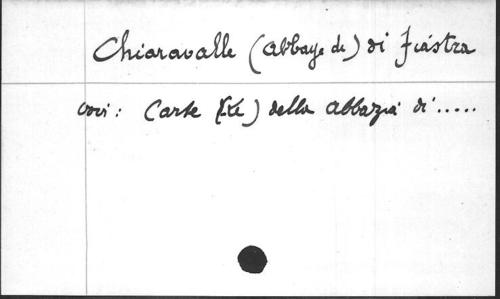 Chiaravalle (abbaye de) di Fiastra
voir : Carte (Le) della abbazia di .....